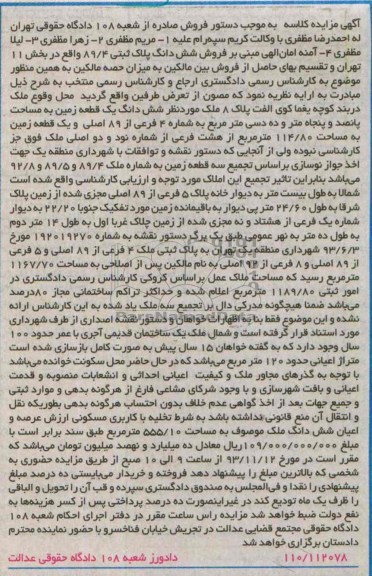 آگهی مزایده کلاسه به موجب دستور فروش صادره از شعبه ۱۰۸ دادگاه حقوقی تهران
له احمدرضا مظفری با وکالت کریم سپهرام علیه ۱- مریم مظفری ۲- زهرا مظفری ۳- لیلا
مظفری ۴- آمنه امان‌الهی مبنی بر فروش شش دانگ پلاک ثبتی ۸۹/۴ واقع در بخش ۱۱
تهران و تقسیم بهای حاصل از فروش بین مالکین به میزان حصه مالکین به همین منظور
موضوع به کارشناس رسمی دادگستری ارجاع و کارشناس رسمی منتخب به شرح ذیل
مبادرت به ارایه نظریه نمود که مصون از تعرض طرفین واقع گردید محل وقوع ملک
دربند کوچه یغما کوی الفت پلاک ۸ ملک موردنظر شش دانگ یک قطعه زمین به مساحت
پانصد و پنجاه متر و ده دسی متر مربع به شماره ۴ فرعی از ۸۹ اصلی و یک قطعه زمین
به مساحت ۱۱۴/۸۰ مترمربع از هشت فرعی از شماره نود و دو اصلی ملک فوق جز
کارشناسی نبوده ولی از آنجایی که دستور نقشه و توافقات با شهرداری منطقه یک جهت
اخذ جواز نوسازی براساس تجمیع سه قطعه زمین به شماره ملک ۸۹/۴ و ۸۹/۵ و ۹۲/۸
می‌باشد بنابراین تاثیر تجمیع این املاک مورد توجه و ارزیابی کارشناسی واقع شده است
شمالا به طول بیست متر به دیوار خانه پلاک ۵ فرعی از ۸۹ اصلی مجزی شده از زمین پلاک
شرقا به طول ۲۴/۶۰ متر پی دیوار به باقیمانده زمین مورد تفکیک جنوبا ۲۲/۲۰ به دیوار
شماره یک فرعی از هشتاد و نه مجزی شده از زمین پلاک غربا اول به طول ۱۴ متر دوم
به طول ده متر به نهر عمومی طبق یک برگ دستور نقشه به شماره ۱۹۲۰۱۹۲۷۰ مورخ
۹۳/۶/۳ شهرداری منطقه یک تهران به پلاک ثبتی ملک ۴ فرعی از ۸۹ اصلی و ۵ فرعی
از ۸۹ اصلی و ۸ فرعی از ۹۲ اصلی به نام مالکین پس از اصلاحی به مساحت ۱۱۶۷/۷۰
مترمربع رسید که مساحت ملاک عمل براساس کروکی کارشناس رسمی دادگستری در
امور ثبتی ۱۱۸۹/۸۰ مترمربع اعلام شده و حداکثر تراکم ساختمانی مجاز ۸۰درصد
می‌باشد ضمنا هیچگونه مدرکی دال بر تجمیع سه ملک یاد شده به این کارشناس ارائه
نشده و این موضوع فقط بنا به اظهارات خواهان و دستور نقشه اصداری از طرف شهرداری
مورد استناد قرار گرفته است و شمال ملک یک ساختمان قدیمی آجری با عمر حدود ۱۰۰
سال وجود دارد که به گفته خواهان ۱۵ سال پیش به صورت کامل بازسازی شده است
متراژ اعیانی حدود ۱۲۰ متر مربع می‌باشد که در حال حاضر محل سکونت خوانده می‌باشد
با توجه به گذرهای مجاور ملک و کیفیت اعیانی احداثی و انشعابات منصوبه و قدمت
اعیانی و بافت شهرسازی و با وجود شرکای مشاعی فارغ از هرگونه بدهی و موارد ثبتی
و جمیع جهات بعد از اخذ گواهی عدم خلاف بدون احتساب هرگونه بدهی بطوریکه نقل
و انتقال آن منع قانونی نداشته باشد به شرط تخلیه با کاربری مسکونی ارزش عرصه و
اعیان شش دانگ ملک موصوف به مساحت ۵۵۵/۱۰ مترمربع طبق سند برابر است با
مبلغ ۱۰۹/۰۰۰/۰۰۰/۰۰۰ریال معادل ده میلیارد و نهصد میلیون تومان می‌باشد که
مقرر است در مورخ ۹۳/۱۱/۱۲ از ساعت ۹ الی ۱۰ صبح از طریق مزایده حضوری به
شخصی که بالاترین مبلغ را پیشنهاد دهد فروخته و خریدار می‌بایستی ده درصد مبلغ
پیشنهادی را نقدا و فی‌المجلس به صندوق دادگستری سپرده و قب آن را تحویل و الباقی
را ظرف یک ماه تودیع کند در غیراینصورت ده درصد پرداختی پس از کسر هزینه‌ها به
نفع دولت ضبط خواهد شد مزایده راس ساعت مقرر در دفتر اجرای احکام شعبه ۱۰۸
دادگاه حقوقی مجتمع قضایی عدالت در تجریش خیابان فناخسرو با حضور نماینده محترم
دادستان برگزاری خواهد شد
۱۱۰/۱۱۲۰۷۸ دادورز شعبه ۱۰۸ دادگاه حقوقی عدالت